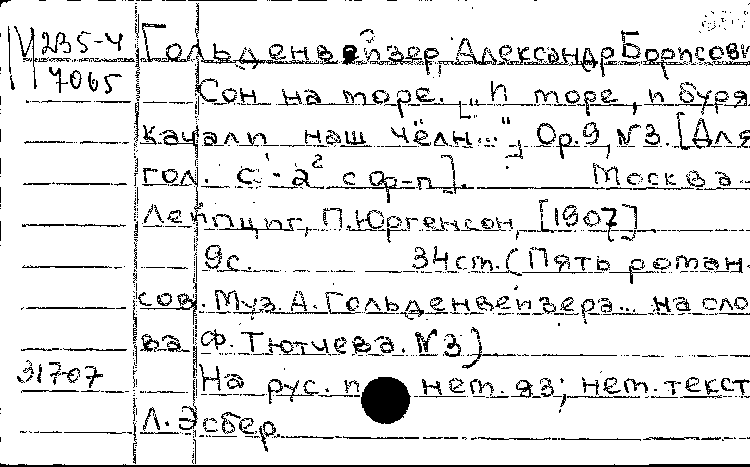 М 235-4 Гольденвейзер, Александр Борисови
7065 Сон на море. [„И море, и буря
качали наш чёлн..."], Ор.9, №3. [Для
гол. с¹-а² с ф-п]. Москва-
Лейпциг, П.Юргенсон, [1907]
9с. 34ст. (Пять роман-
сов. Муз. А. Гольденвейзера... на сло
ва Ф. Тютчева. №3)
31707 На рус. и нем. яз; нем. текст
Л. Эсбер